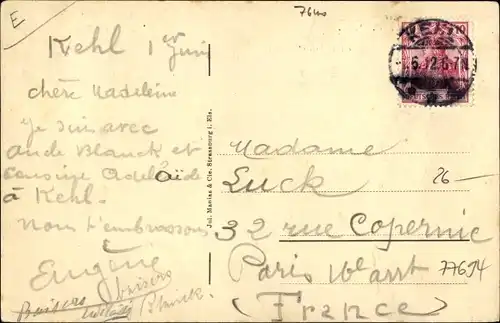 E
76wo
Kehl 1er Juni
chère Madeleine
Je suis avec
Blanck et
cousine Adelaïde
à Kehl.
Nous t'embrassons
Eugène
baisers
Baisers Blanck.
Jul. Manias & Cie. Strassburg i. Els.
KEHL
10
6.12.6-7N
Madame
Luck
26-
32 rue Copernic
Paris
77694
(France)